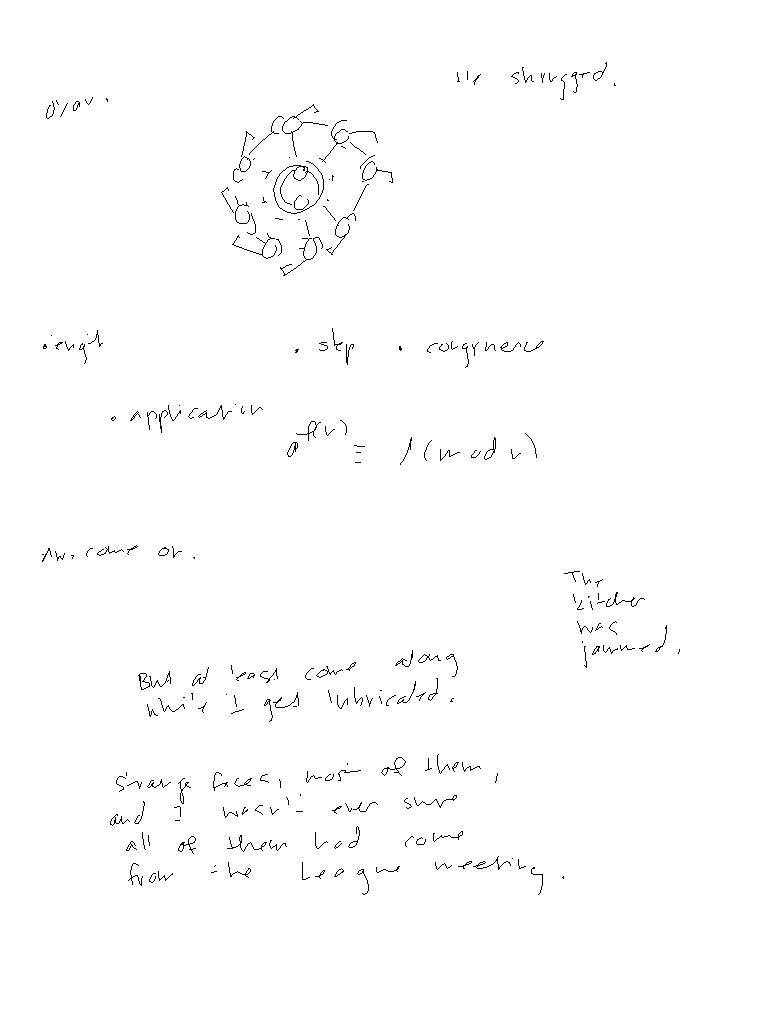 He shrugged.
Okay.
• length
• step
• congruence
• application
a^f(n) ≡ 1 (mod n)
Aw, come on.
The
kitchen
was
jammed.
But at least come along
while I get lubricated.
Strange faces, most of them,
and I wasn't even sure
all of them had come
from the League meeting.